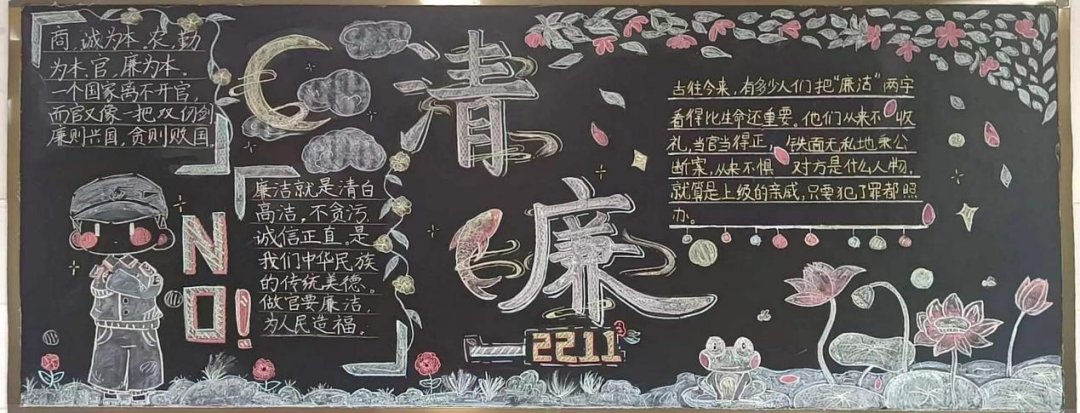 商,诚为本.农,勤
为本.官,廉为本.
一个国家离不开官,
而官又像一把双刃剑
廉则兴国,贪则败国.
NO!
廉洁就是清白
高洁,不贪污.
诚信正直。是
我们中华民族
的传统美德。
做官要廉洁,
为人民造福.
清
廉
2211
古往今来,有多少人们把“廉洁”两字
看得比生命还重要,他们从来不收
礼,当官当得正,铁面无私地秉公
断案,从来不惧对方是什么人物,
就算是上级的亲戚,只要犯了罪都照
办。